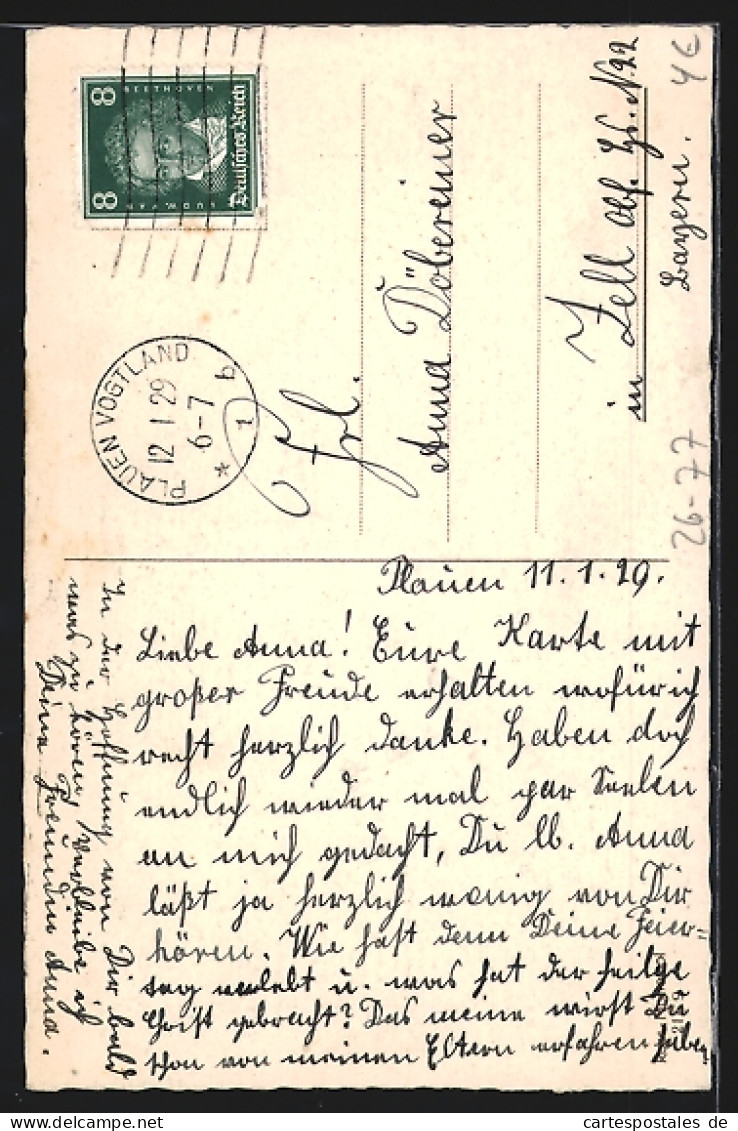 8 8
LUDW. VAN BEETHOVEN
Deutsches Reich
PLAUEN VOGTLAND
12 1 29
6-7
* 1 b
Frl.
Anna Döbereiner
in Zell
Nr. 22
Bayern.
4€
26-77
Plauen 11.1.29.
Liebe Anna! Eure Karte mit
großer Freude erhalten wofür ich
recht herzlich danke. Haben doch
endlich wieder mal paar Seelen
an mich gedacht, Du lb. Anna
läßt ja herzlich wenig von Dir
hören. Wie hast denn Deine Feier-
tag verlebt u. was hat der heilge
Christ gebracht? Das meine wirst Du
schon von meinen Eltern erfahren haben.
In der Hoffnung von Dir bald
was zu hören, verbleibe ich
Deine Freundin Anna.
cartespostales de